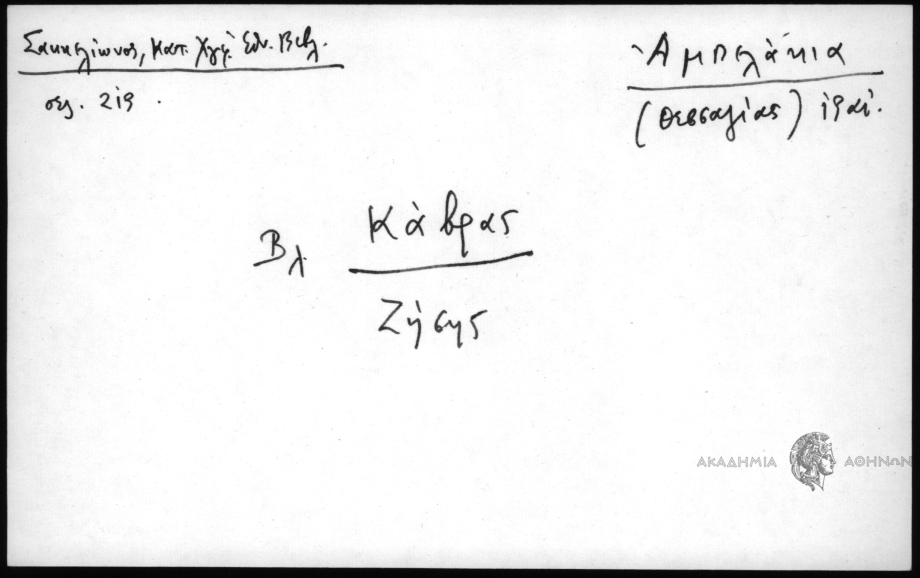 Σακκελίωνος, Κατ. Χγφ. Εθν. Βιβλ.
σελ. 219.
Ἀμπελάκια
(Θεσσαλίας) ιθ αἰ.
Βλ Κάβρας
Ζήσης
ΑΚΑΔΗΜΙΑ ΑΘΗΝΩΝ